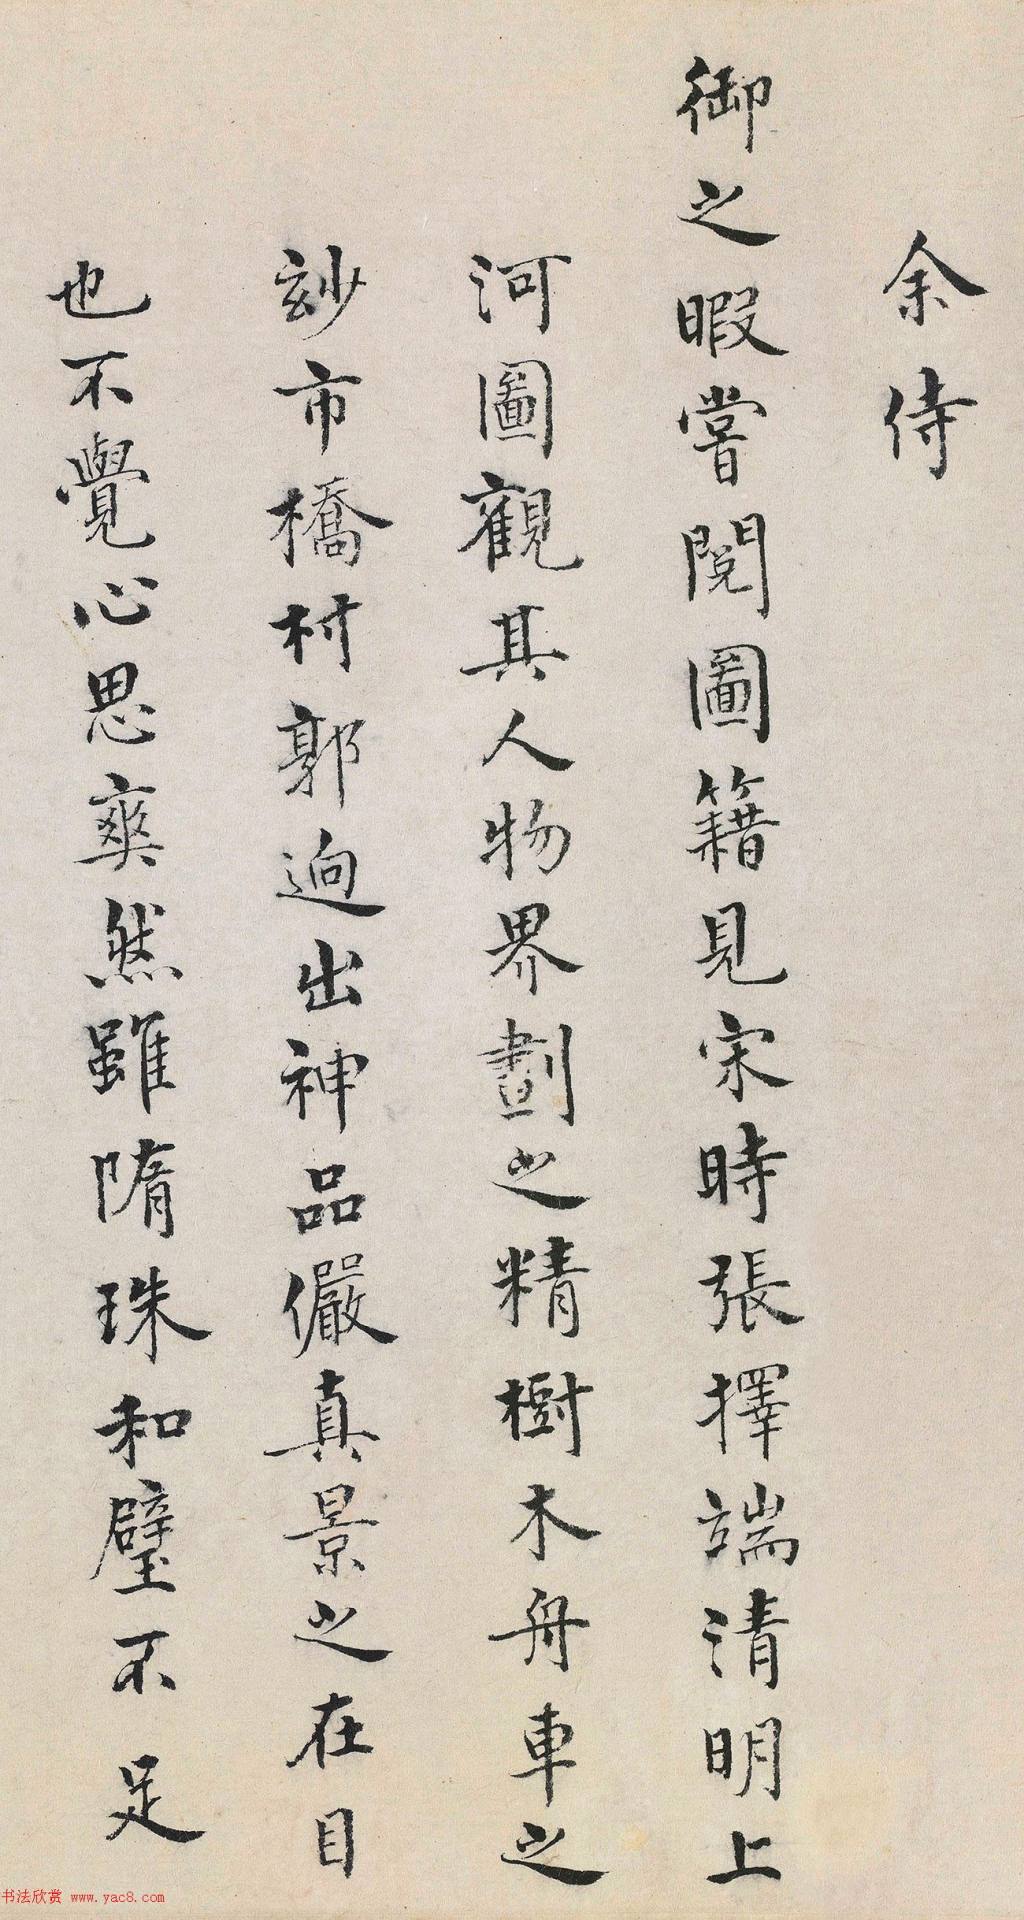 余侍
御之暇嘗閱圖籍見宋時張擇端清明上
河圖觀其人物界劃之精樹木舟車之
玅市橋村郭迥出神品儼真景之在目
也不覺心思爽然雖隋珠和璧不足
书法欣赏 www.yac8.com